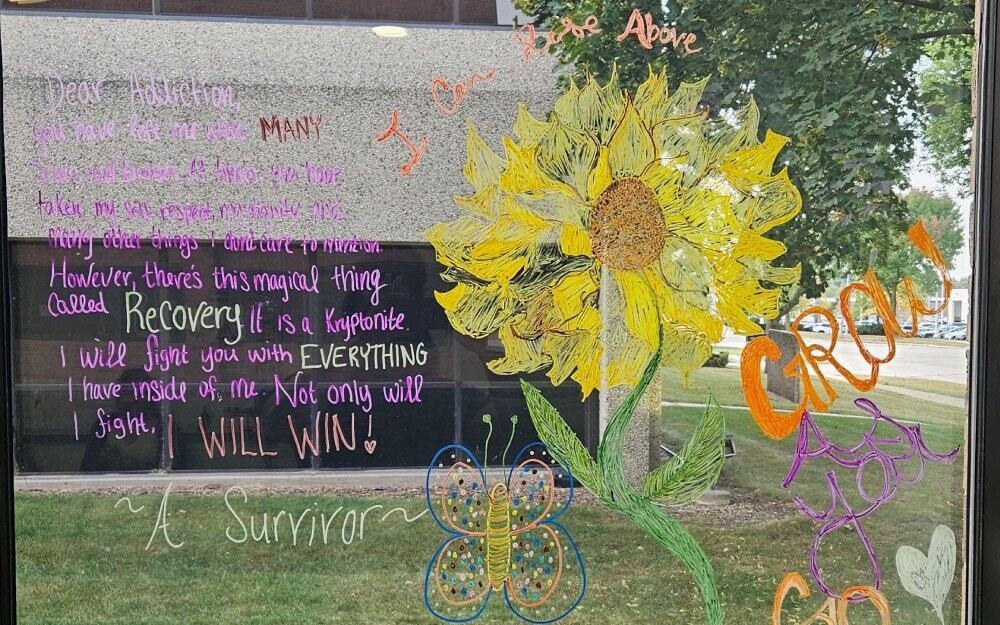 Dear Addiction,
you have left me with MANY
Scars and bruises. At times you have
taken my self respect, my dignity, and
many other things I dont care to mention.
However, there's this magical thing
Called Recovery It is a Kryptonite.
I will fight you with EVERYTHING
I have inside of me. Not only will
I fight, I WILL WIN!
~A Survivor~
I Can Rise Above
GROW!
As
you
GO